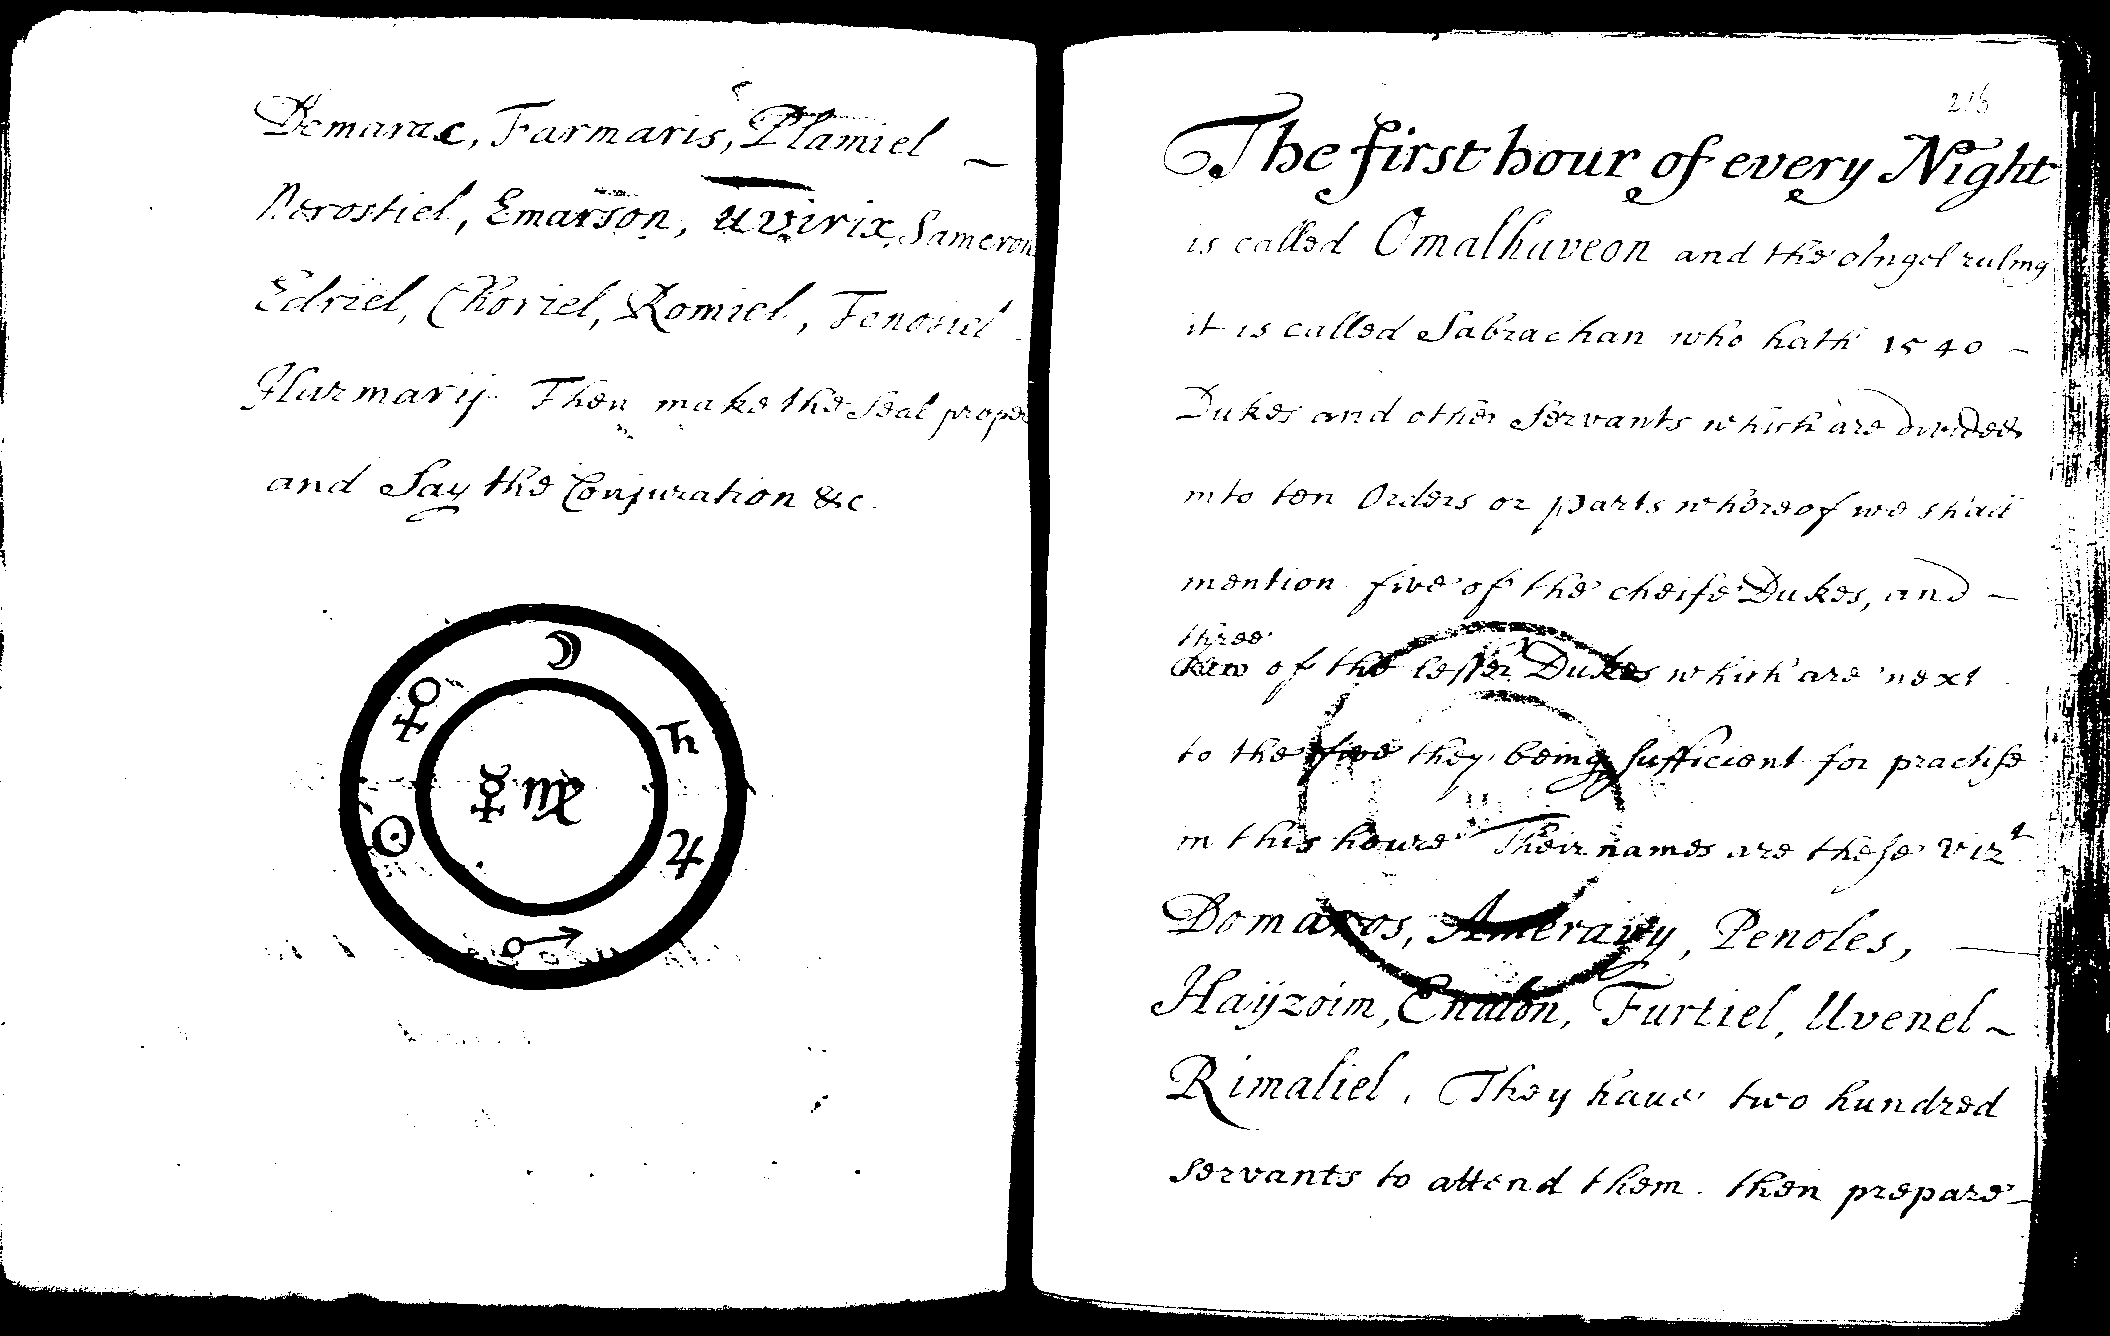 Demarac, Farmaris, Plamiel —
Nerostiel, Emarson, Uvirix, Sameron
Edriel, Choriel, Romiel, Fenosiel
Hurmarij. Then make the Seal proper
and Say the Conjuration &c.
☽
♀ ♄
☿ ♍
☉ ♃
♂
218
The first hour of every Night
is called Omalhaveon and the Angel ruling
it is called Sabrachan who hath 1540 —
Dukes and other Servants which are divided
into ten Orders or parts whereof we shall
mention five of the cheife Dukes, and —
three
of the lesser Dukes which are next
to the five they being sufficient for practise
in this houre Their names are these vizt
Domaros, Amerany, Penoles, —
Haÿzoim, Enalon, Furtiel, Uvenel —
Rimaliel. They haue two hundred
servants to attend them. then prepare —